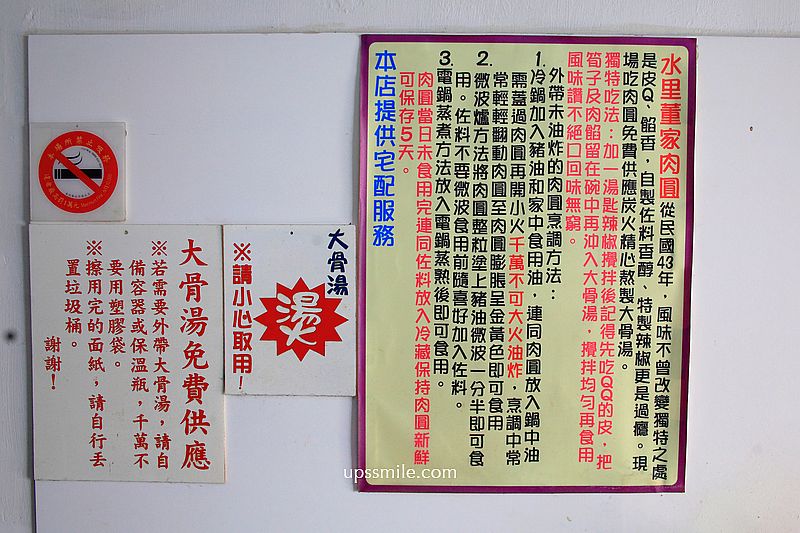 水里董家肉圓 從民國43年，風味不曾改變獨特之處
是皮Q、餡香，自製佐料香醇、特製辣椒更是過癮。現
場吃肉圓免費供應炭火精心熬製大骨湯。
獨特吃法：加一湯匙辣椒攪拌後記得先吃QQ的皮，把
筍子及肉餡留在碗中再沖入大骨湯，攪拌均勻再食用
風味讚不絕口回味無窮。
外帶未油炸的肉圓烹調方法：
1.冷鍋加入豬油和家中食用油，連同肉圓放入鍋中油
需蓋過肉圓再開小火千萬不可大火油炸，烹調中常
常輕輕翻動肉圓至肉圓膨脹呈金黃色即可食用
2.微波爐方法將肉圓整粒塗上豬油微波一分半即可食
用。佐料不要微波食用前隨喜好加入佐料。
3.電鍋蒸煮方法放入電鍋蒸熟後即可食用。
肉圓當日未食用完連同佐料放入冷藏保持肉圓新鮮
可保存5天。
本店提供宅配服務
大骨湯
燙
※請小心取用！
大骨湯免費供應
※若需要外帶大骨湯，請自
備容器或保溫瓶，千萬不
要用塑膠袋。
※擦用完的面紙，請自行丟
置垃圾桶。
謝謝！
本場所禁止吸菸
upssmile.com